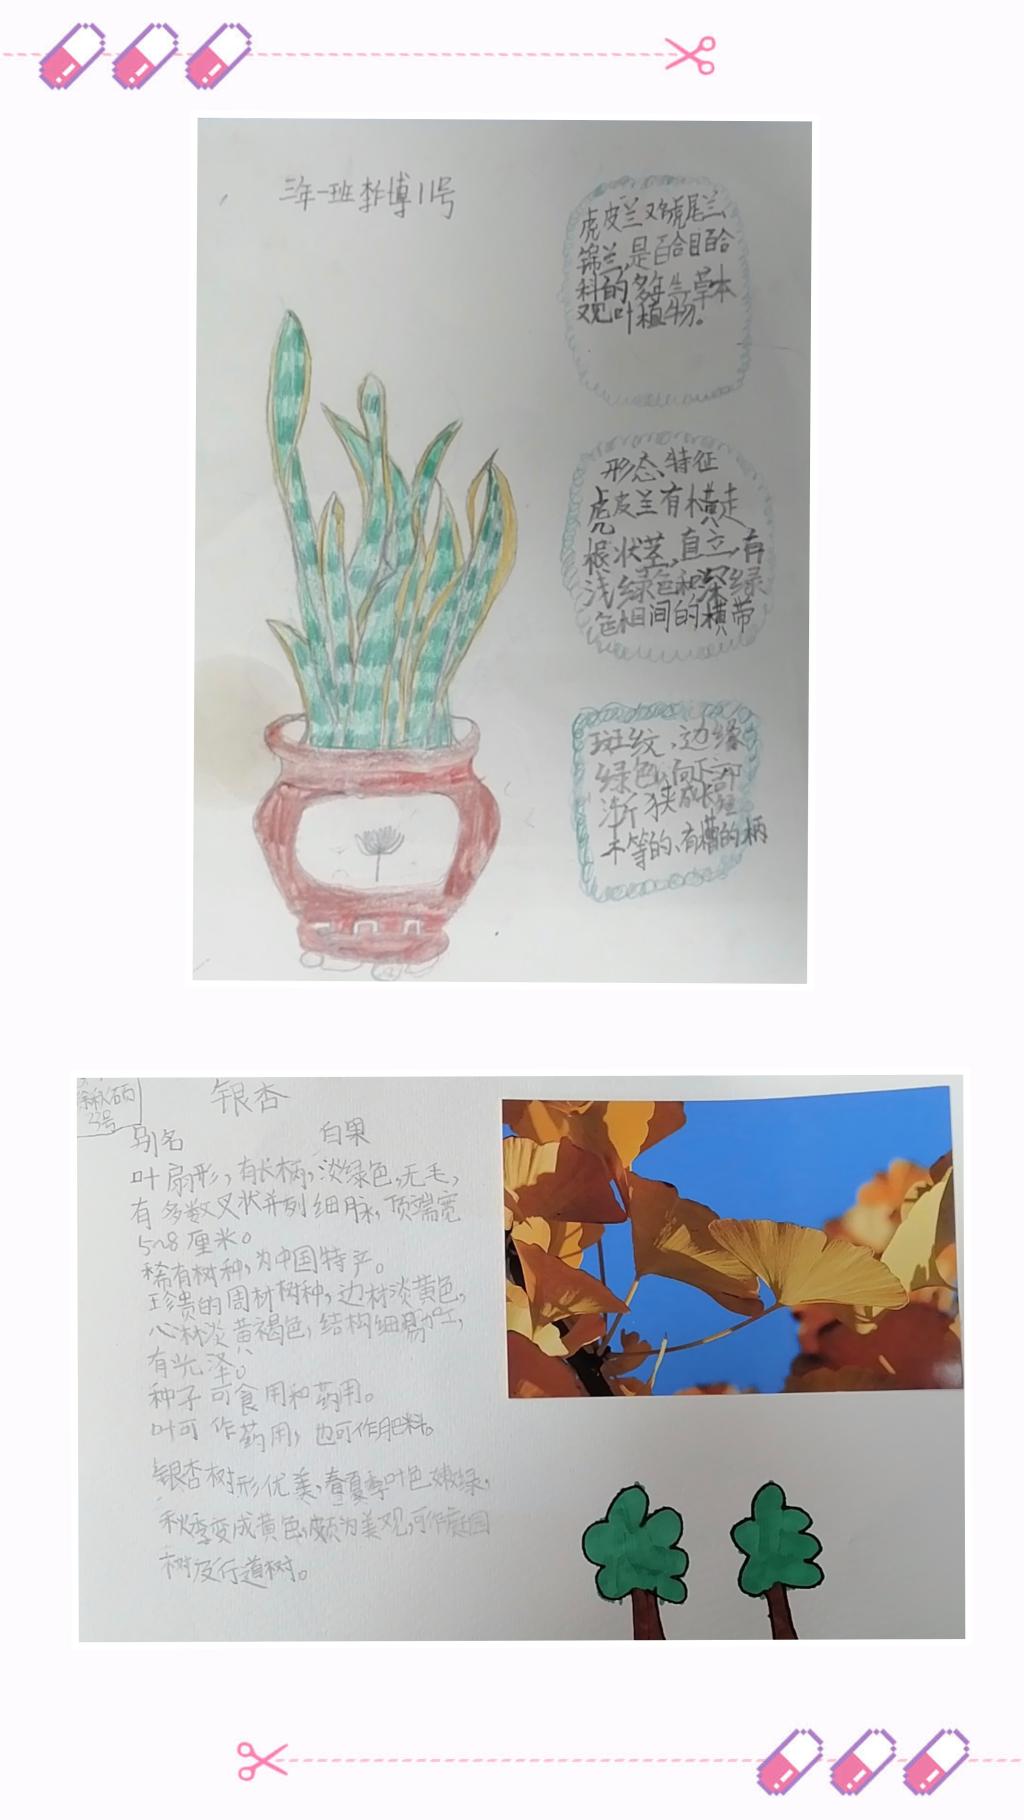 三年一班 李博11号
虎皮兰又名虎尾兰、
锦兰,是百合目百合
科的多年生草本
观叶植物。
形态特征
虎皮兰有横走
根状茎,直立,有
浅绿色和深绿
色相间的横带
斑纹,边缘
绿色,向下部
渐狭成长短
不等的、有槽的柄
3号
银杏
别名 白果
叶扇形,有长柄,淡绿色,无毛,
有多数叉状并列细脉,顶端宽
5~8厘米。
稀有树种,为中国特产。
珍贵的周材树种,边材淡黄色,
心材淡黄褐色,结构细,易加工,
有光泽。
种子可食用和药用。
叶可作药用,也可作肥料。
银杏树形优美,春夏季叶色嫩绿,
秋季变成黄色,颇为美观,可作庭园
树及行道树。